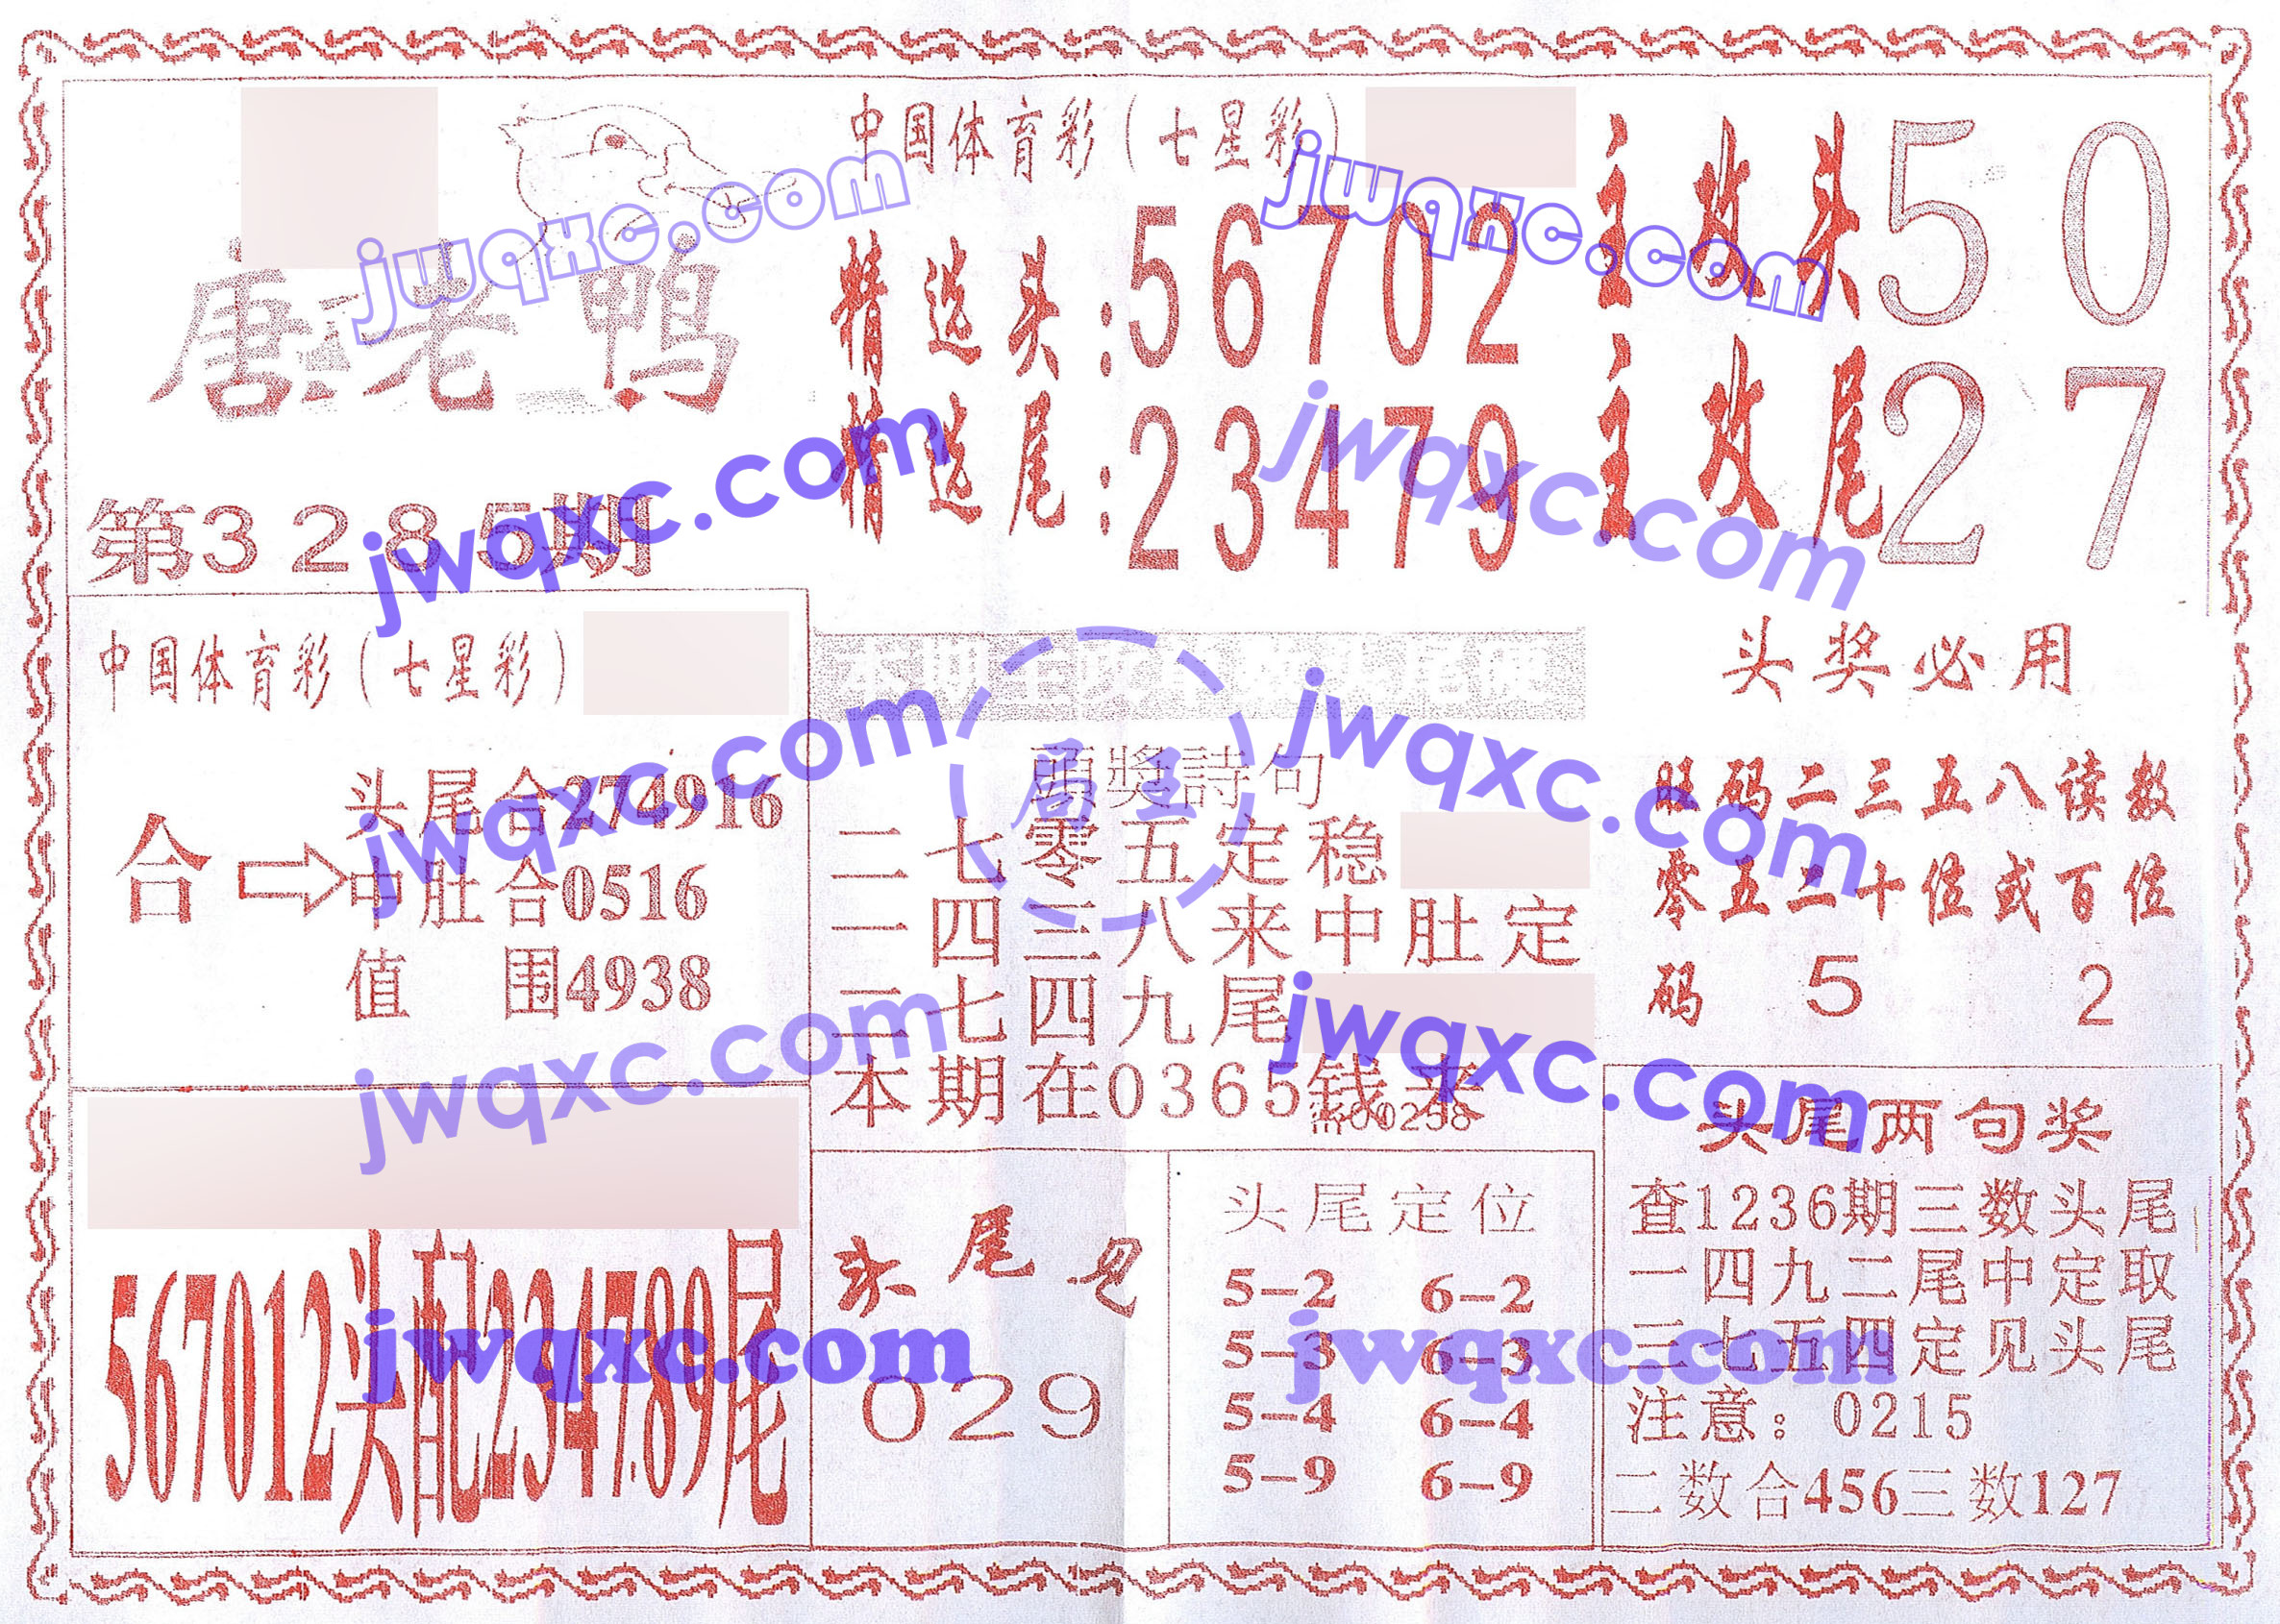 唐老鸭
第3285期
中国体育彩(七星彩)
精选头:56702
精选尾:23479
主攻头50
主攻尾27
中国体育彩(七星彩)
合
头尾合274916
中肚合0516
值围4938
567012头配234789尾
頭獎詩句
二七零五定稳
一四三八来中肚定
二七四九尾
本期在0365钱来
头尾见
029
头尾定位
5-2 6-2
5-3 6-3
5-4 6-4
5-9 6-9
头奖必用
旺码二三五八读数
零五二十位或百位
码 5 2
头尾两句奖
查1236期三数头尾
一四九二尾中定取
三七五四定见头尾
注意:0215
二数合456三数127
jwqxc.com
jwqxc.com
jwqxc.com
jwqxc.com
jwqxc.com
jwqxc.com
jwqxc.com
jwqxc.com
jwqxc.com
jwqxc.com